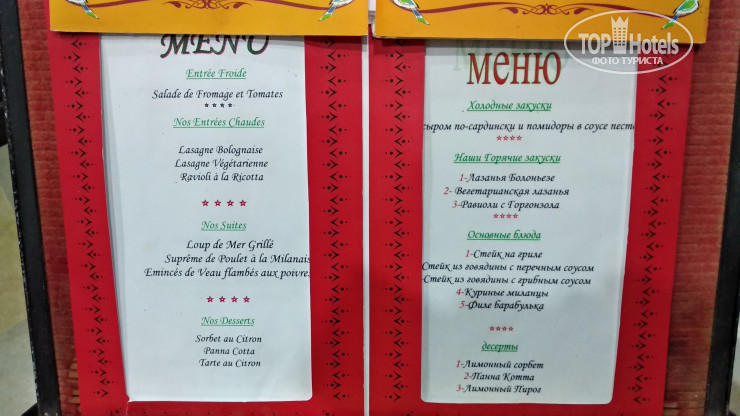 MENU
Entrée Froide
Salade de Fromage et Tomates
****
Nos Entrées Chaudes
Lasagne Bolognaise
Lasagne Végétarienne
Ravioli à la Ricotta
****
Nos Suites
Loup de Mer Grillé
Suprême de Poulet à la Milanais
Emincés de Veau flambés aux poivre
****
Nos Desserts
Sorbet au Citron
Panna Cotta
Tarte au Citron
TOP Hotels
ФОТО ТУРИСТА
меню
Холодные закуски
сыром по-сардински и помидоры в соусе песть
****
Наши Горячие закуски
1-Лазанья Болоньезе
2- Вегетарианская лазанья
3-Равиоли с Горгонзола
****
Основные блюда
1-Стейк на гриле
Стейк из говядины с перечным соусом
-Стейк из говядины с грибным соусом
4-Куриные миланцы
5-Филе барабулька
****
десерты
1-Лимонный сорбет
2-Панна Котта
3-Лимонный Пирог